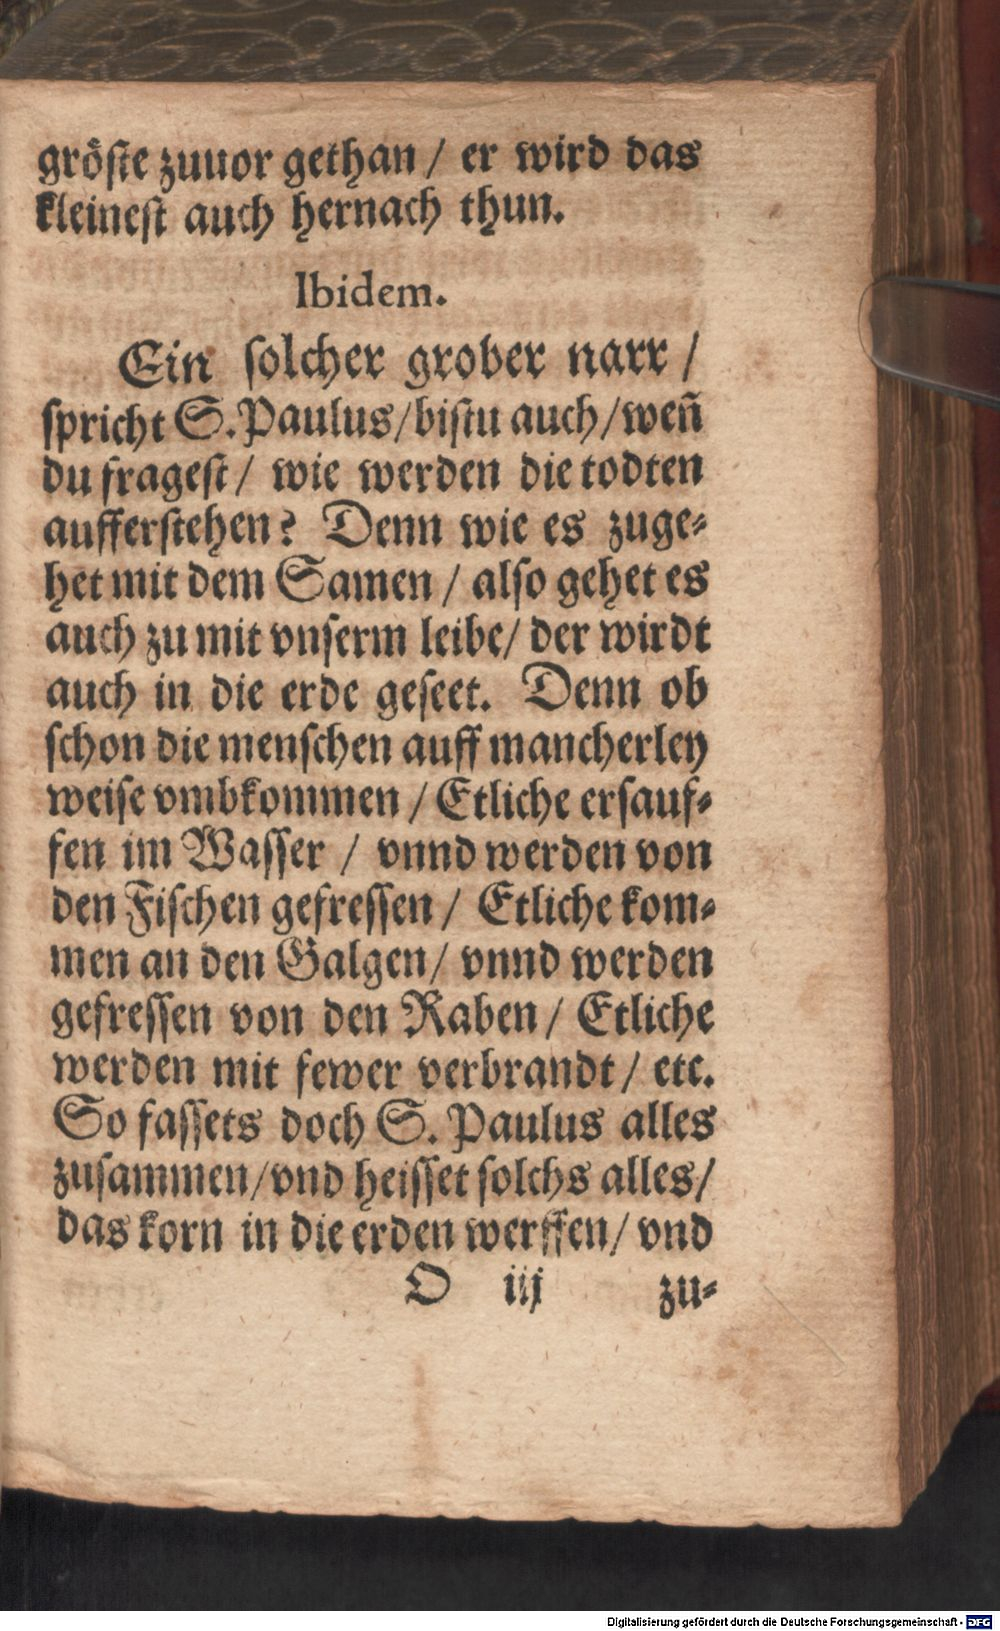 gröſte zuuor gethan / er wird das
kleineſt auch hernach thun.
Ibidem.
Ein ſolcher grober narr /
ſpricht S. Paulus / biſtu auch / weñ
du frageſt / wie werden die todten
aufferſtehen? Denn wie es zuge⸗
het mit dem Samen / alſo gehet es
auch zu mit vnſerm leibe / der wirdt
auch in die erde geſeet. Denn ob
ſchon die menſchen auff mancherley
weiſe vmbkommen / Etliche erſauf⸗
fen im Waſſer / vnnd werden von
den Fiſchen gefreſſen / Etliche kom⸗
men an den Galgen / vnnd werden
gefreſſen von den Raben / Etliche
werden mit fewer verbrandt / etc.
So faſſets doch S. Paulus alles
zuſammen / vnd heiſſet ſolchs alles /
das korn in die erden werffen / vnd
O iij zu⸗
Digitalisierung gefördert durch die Deutsche Forschungsgemeinschaft - DFG